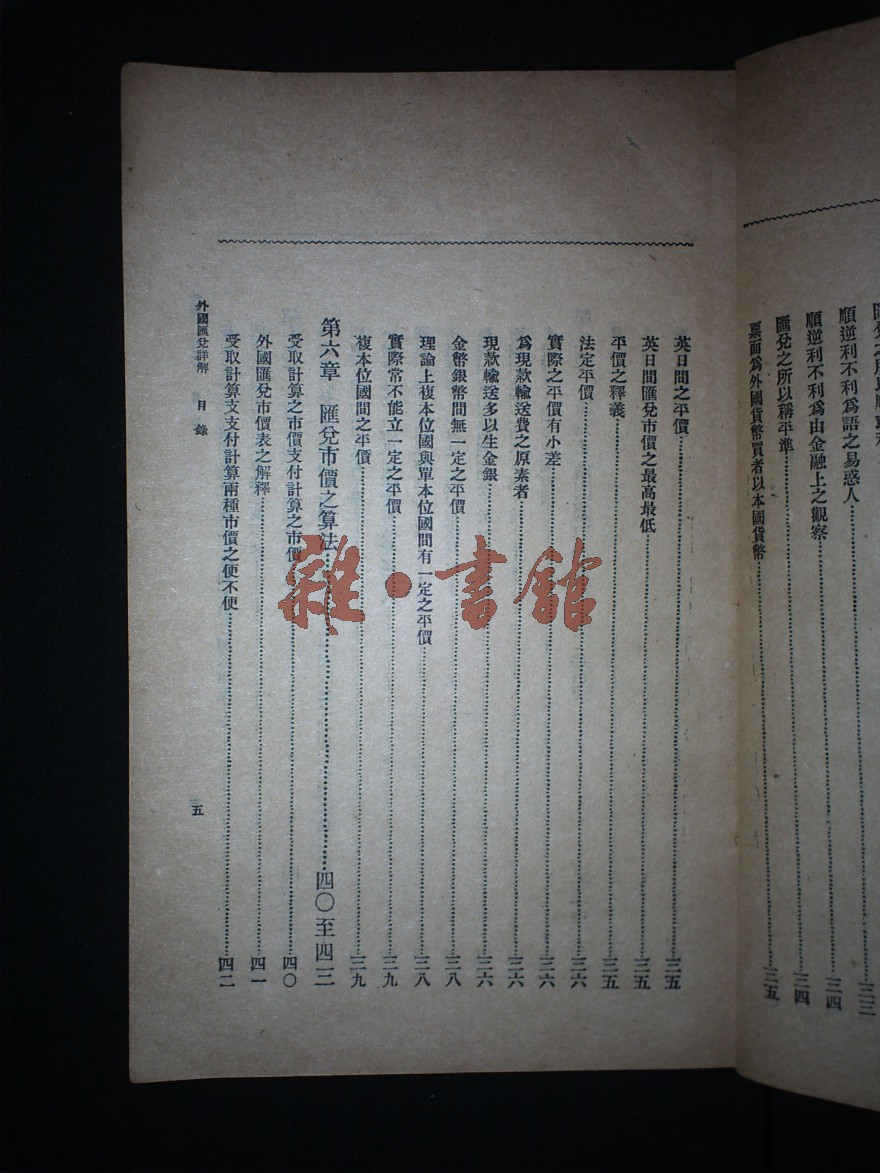 順逆利不利為語之易惑人……三四
順逆利不利為由金融上之觀察……三四
匯兌之所以稱平準……三四
票面為外國貨幣買者以本國貨幣……三五
英日間之平價……三五
英日間匯兌市價之最高最低……三五
平價之釋義……三五
法定平價……三六
實際之平價有小差……三六
為現款輸送費之原素者……三六
現款輸送多以生金銀……三六
金幣銀幣間無一定之平價……三八
理論上複本位國與單本位國間有一定之平價……三八
實際常不能立一定之平價……三九
複本位國間之平價……三九
第六章 匯兌市價之算法……四〇至四三
受取計算之市價支付計算之市價……四〇
外國匯兌市價表之解釋……四一
受取計算支支付計算兩種市價之便不便……四二
外國匯兌詳解 目錄
五
雜·書館